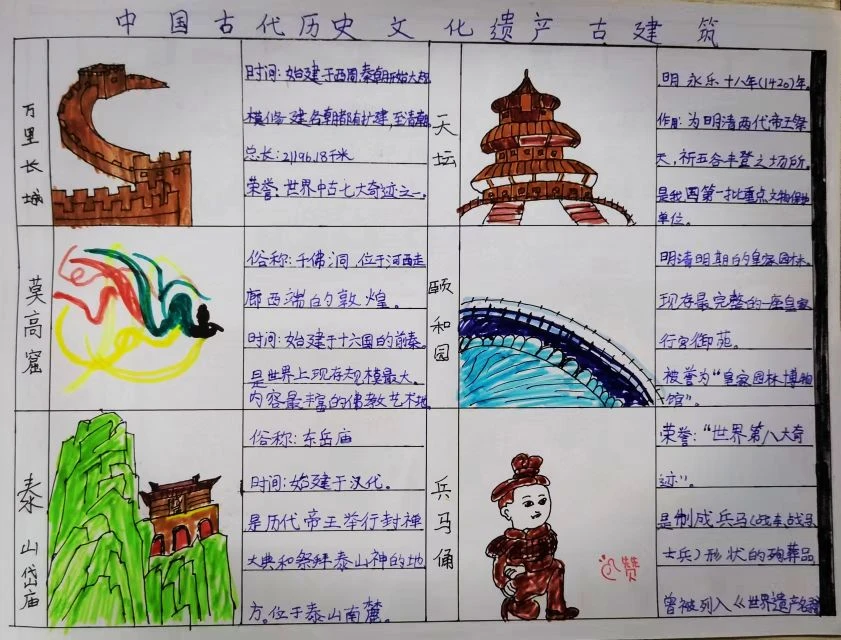 中国古代历史文化遗产古建筑
万里长城
时间:始建于西周秦朝开始大规
模修建各朝都有扩建,至清朝
总长:21196.18千米
荣誉:世界中古七大奇迹之一。
天坛
明永乐十八年(1420)年。
作用:为明清两代帝王祭
天,祈五谷丰登之场所。
是我国第一批重点文物保护
单位。
莫高窟
俗称:千佛洞,位于河西走
廊西端的敦煌。
时间:始建于十六国的前秦。
是世界上现存规模最大。
内容最丰富的佛教艺术地
颐和园
明清时期的皇家园林。
现存最完整的一座皇家
行宫御苑。
被誉为“皇家园林博物
馆”。
泰山岱庙
俗称:东岳庙
时间:始建于汉代。
是历代帝王举行封禅
大典和祭拜泰山神的地
方。位于泰山南麓。
兵马俑
荣誉:“世界第八大奇
迹”。
是制成兵马(战车、战马
士兵)形状的殉葬品
曾被列入《世界遗产名录
赞